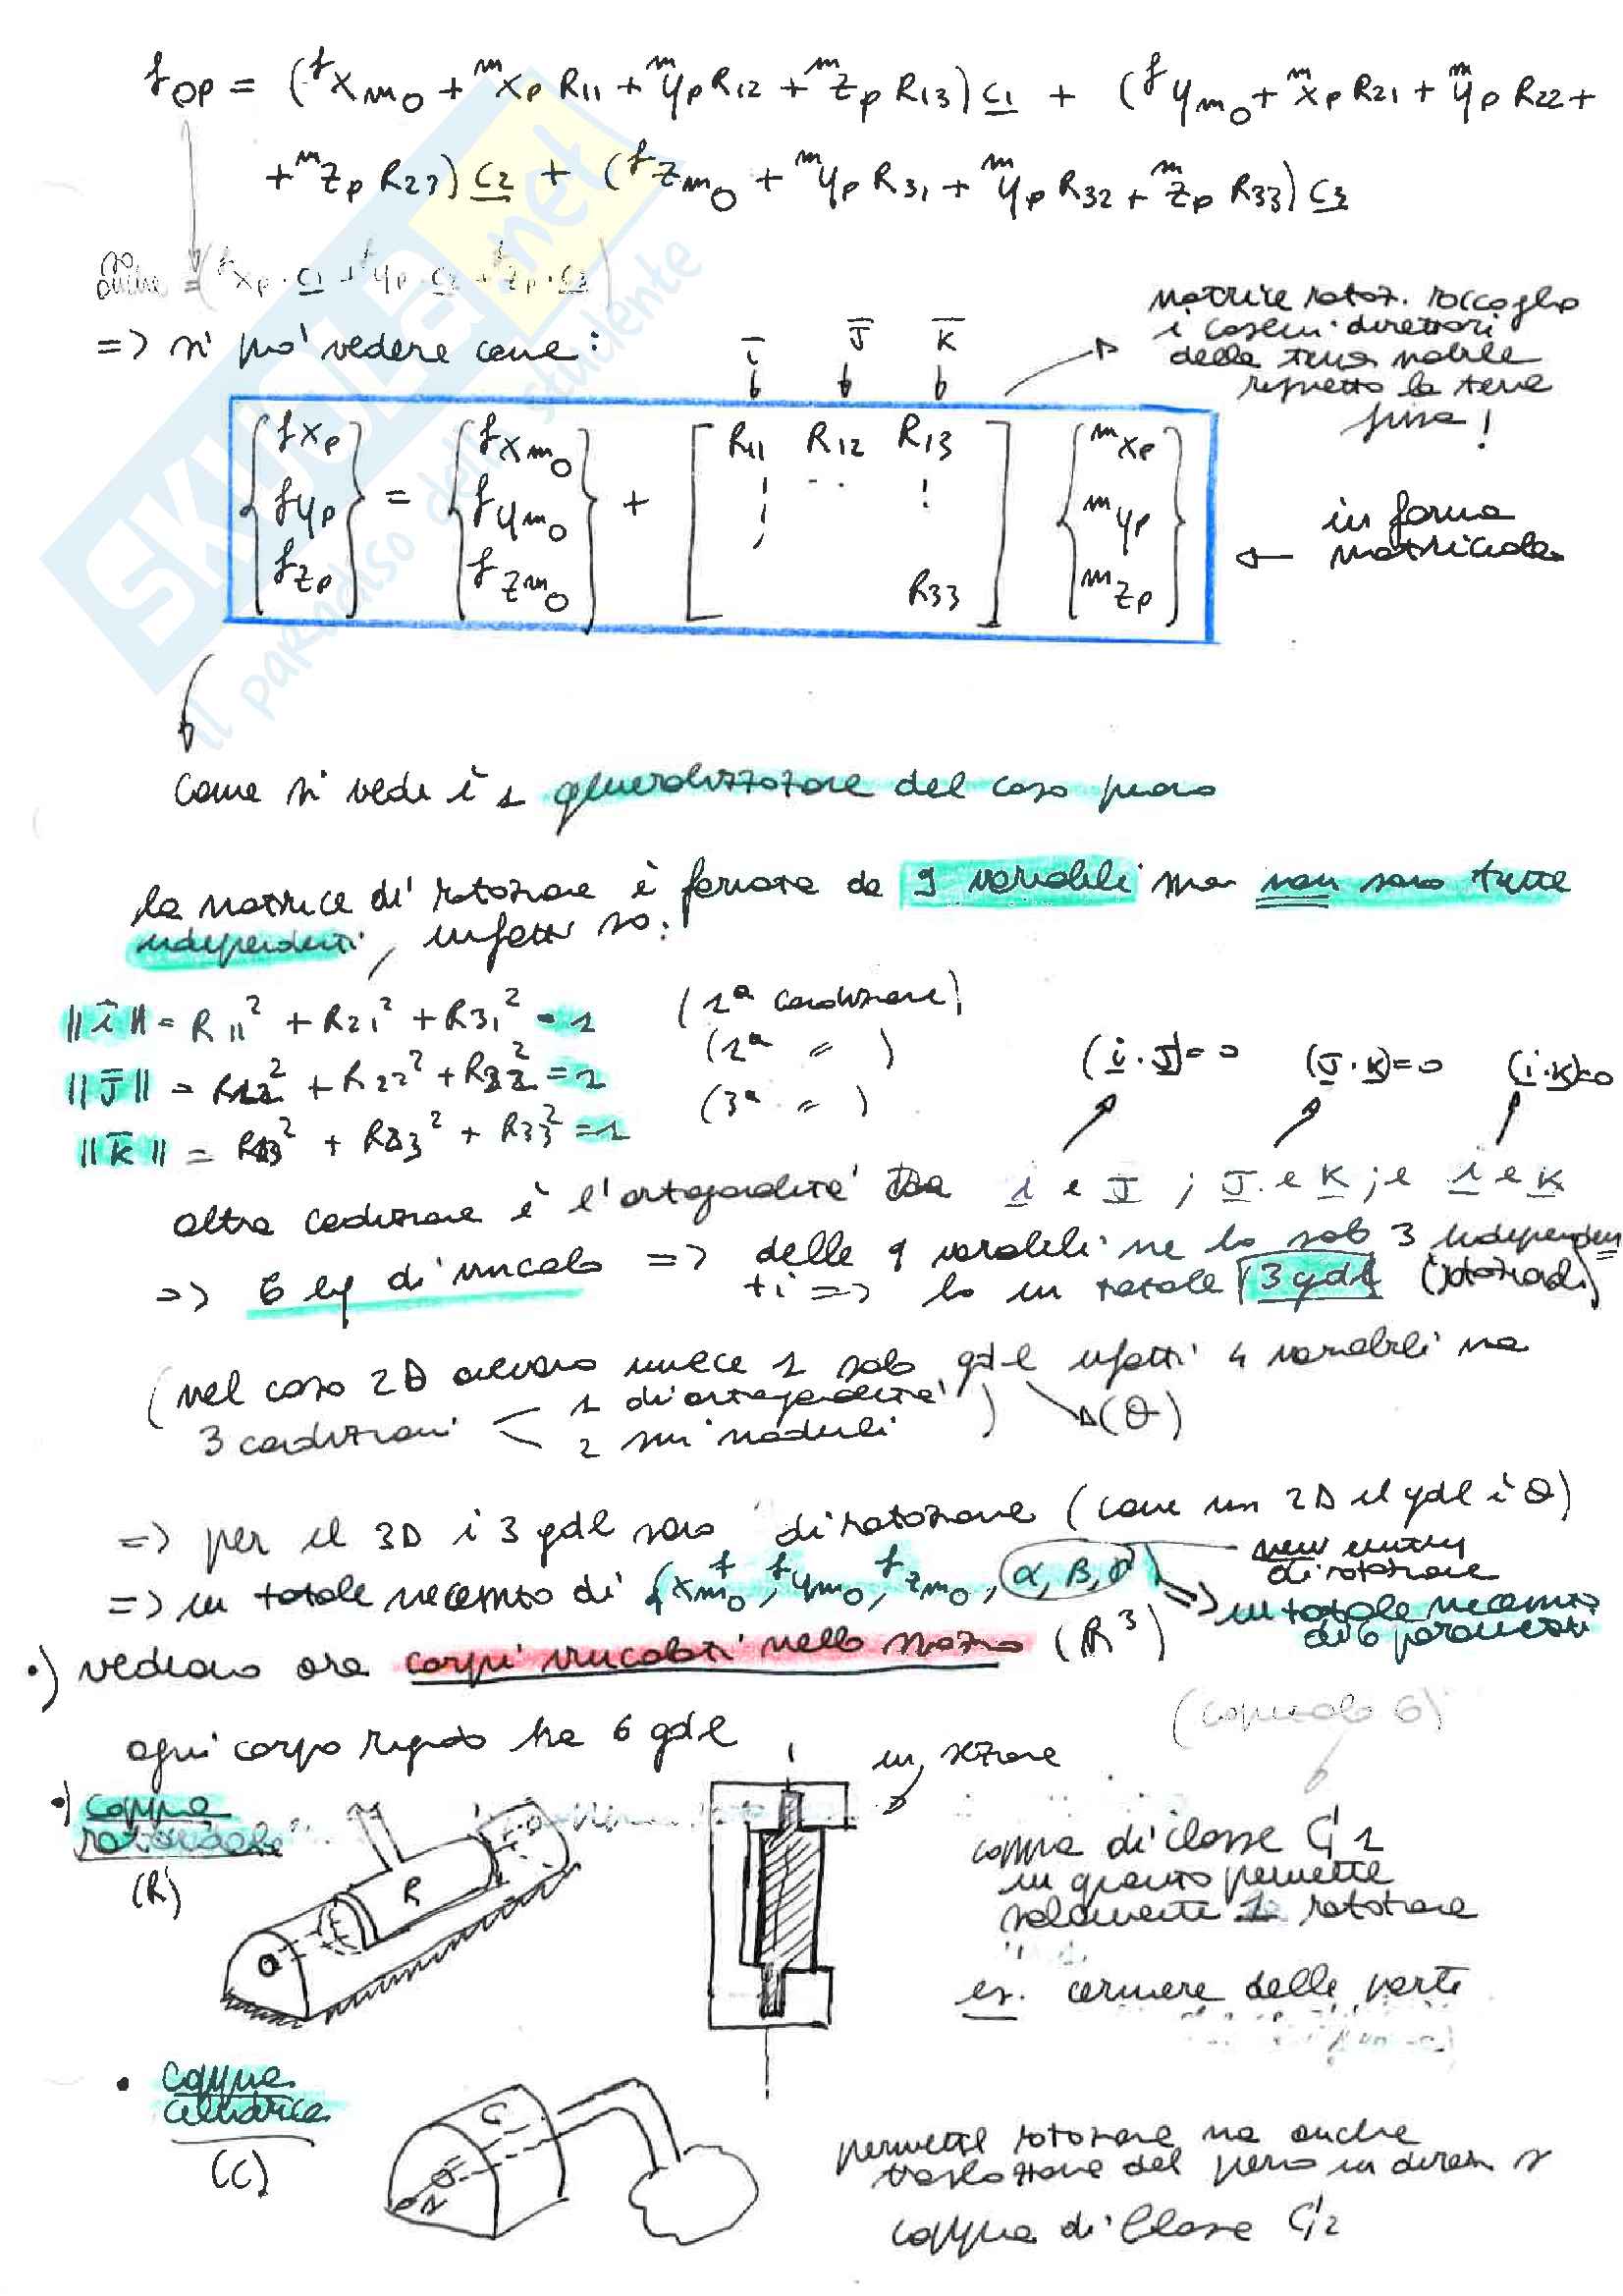 ᶠOP = (ᶠx_mO + ᵐx_P R11 + ᵐy_P R12 + ᵐz_P R13) c1 + (ᶠy_mO + ᵐx_P R21 + ᵐy_P R22 +
+ ᵐz_P R23) c2 + (ᶠz_mO + ᵐy_P R31 + ᵐy_P R32 + ᵐz_P R33) c3
anche = (ᶠx_P · c1 + ᶠy_P · c2 + ᶠz_P · c3)
=> si può vedere come:
i J K
matrice rotaz. raccoglie
i coseni direttori
della terna mobile
rispetto la terna
fissa!
{ᶠx_P ᶠy_P ᶠz_P} = {ᶠx_mO ᶠy_mO ᶠz_mO} + [R11 R12 R13 R33] {ᵐx_P ᵐy_P ᵐz_P}
in forma
matriciale
come si vede è 1 generalizzazione del caso piano
la matrice di rotazione è formata da 9 variabili ma non sono tutte
indipendenti, infatti so:
||i|| = R11² + R21² + R31² = 1 (1ª condizione)
||J|| = R12² + R22² + R32² = 1 (2ª = )
||K|| = R13² + R23² + R33² = 1 (3ª = )
(i · J) = 0 (J · K) = 0 (i · K) = 0
altra condizione è l'ortogonalità tra i e J ; J e K ; e i e K
=> 6 eq di vincolo => delle 9 variabili ne ho solo 3 indipenden
ti => ho in totale 3 gdl (rotazionali)
(nel caso 2D avevamo invece 1 solo gdl infatti 4 variabili ma
3 condizioni < 1 di ortogonalità
2 sui moduli ) (θ)
=> per il 3D i 3 gdl sono di rotazione (come in 2D il gdl è θ)
=> in totale necessito di {ᶠx_mO, ᶠy_mO, ᶠz_mO, α, β, γ}
new entry
di rotazione
=> in totale necessito
di 6 parametri
•) vediamo ora corpi vincolati nello spazio (R³)
(capitolo 6)
ogni corpo rigido ha 6 gdl
in sezione
•) coppia
rotoidale
(R)
R
coppia di classe C1
in quanto permette
solamente 1 rotazione
es. cerniere delle porte
• coppia
cilindrica
(C)
C
permette rotazione ma anche
traslazione del perno in direz
coppia di classe C2
SKUOLA.net
il paradiso dello studente